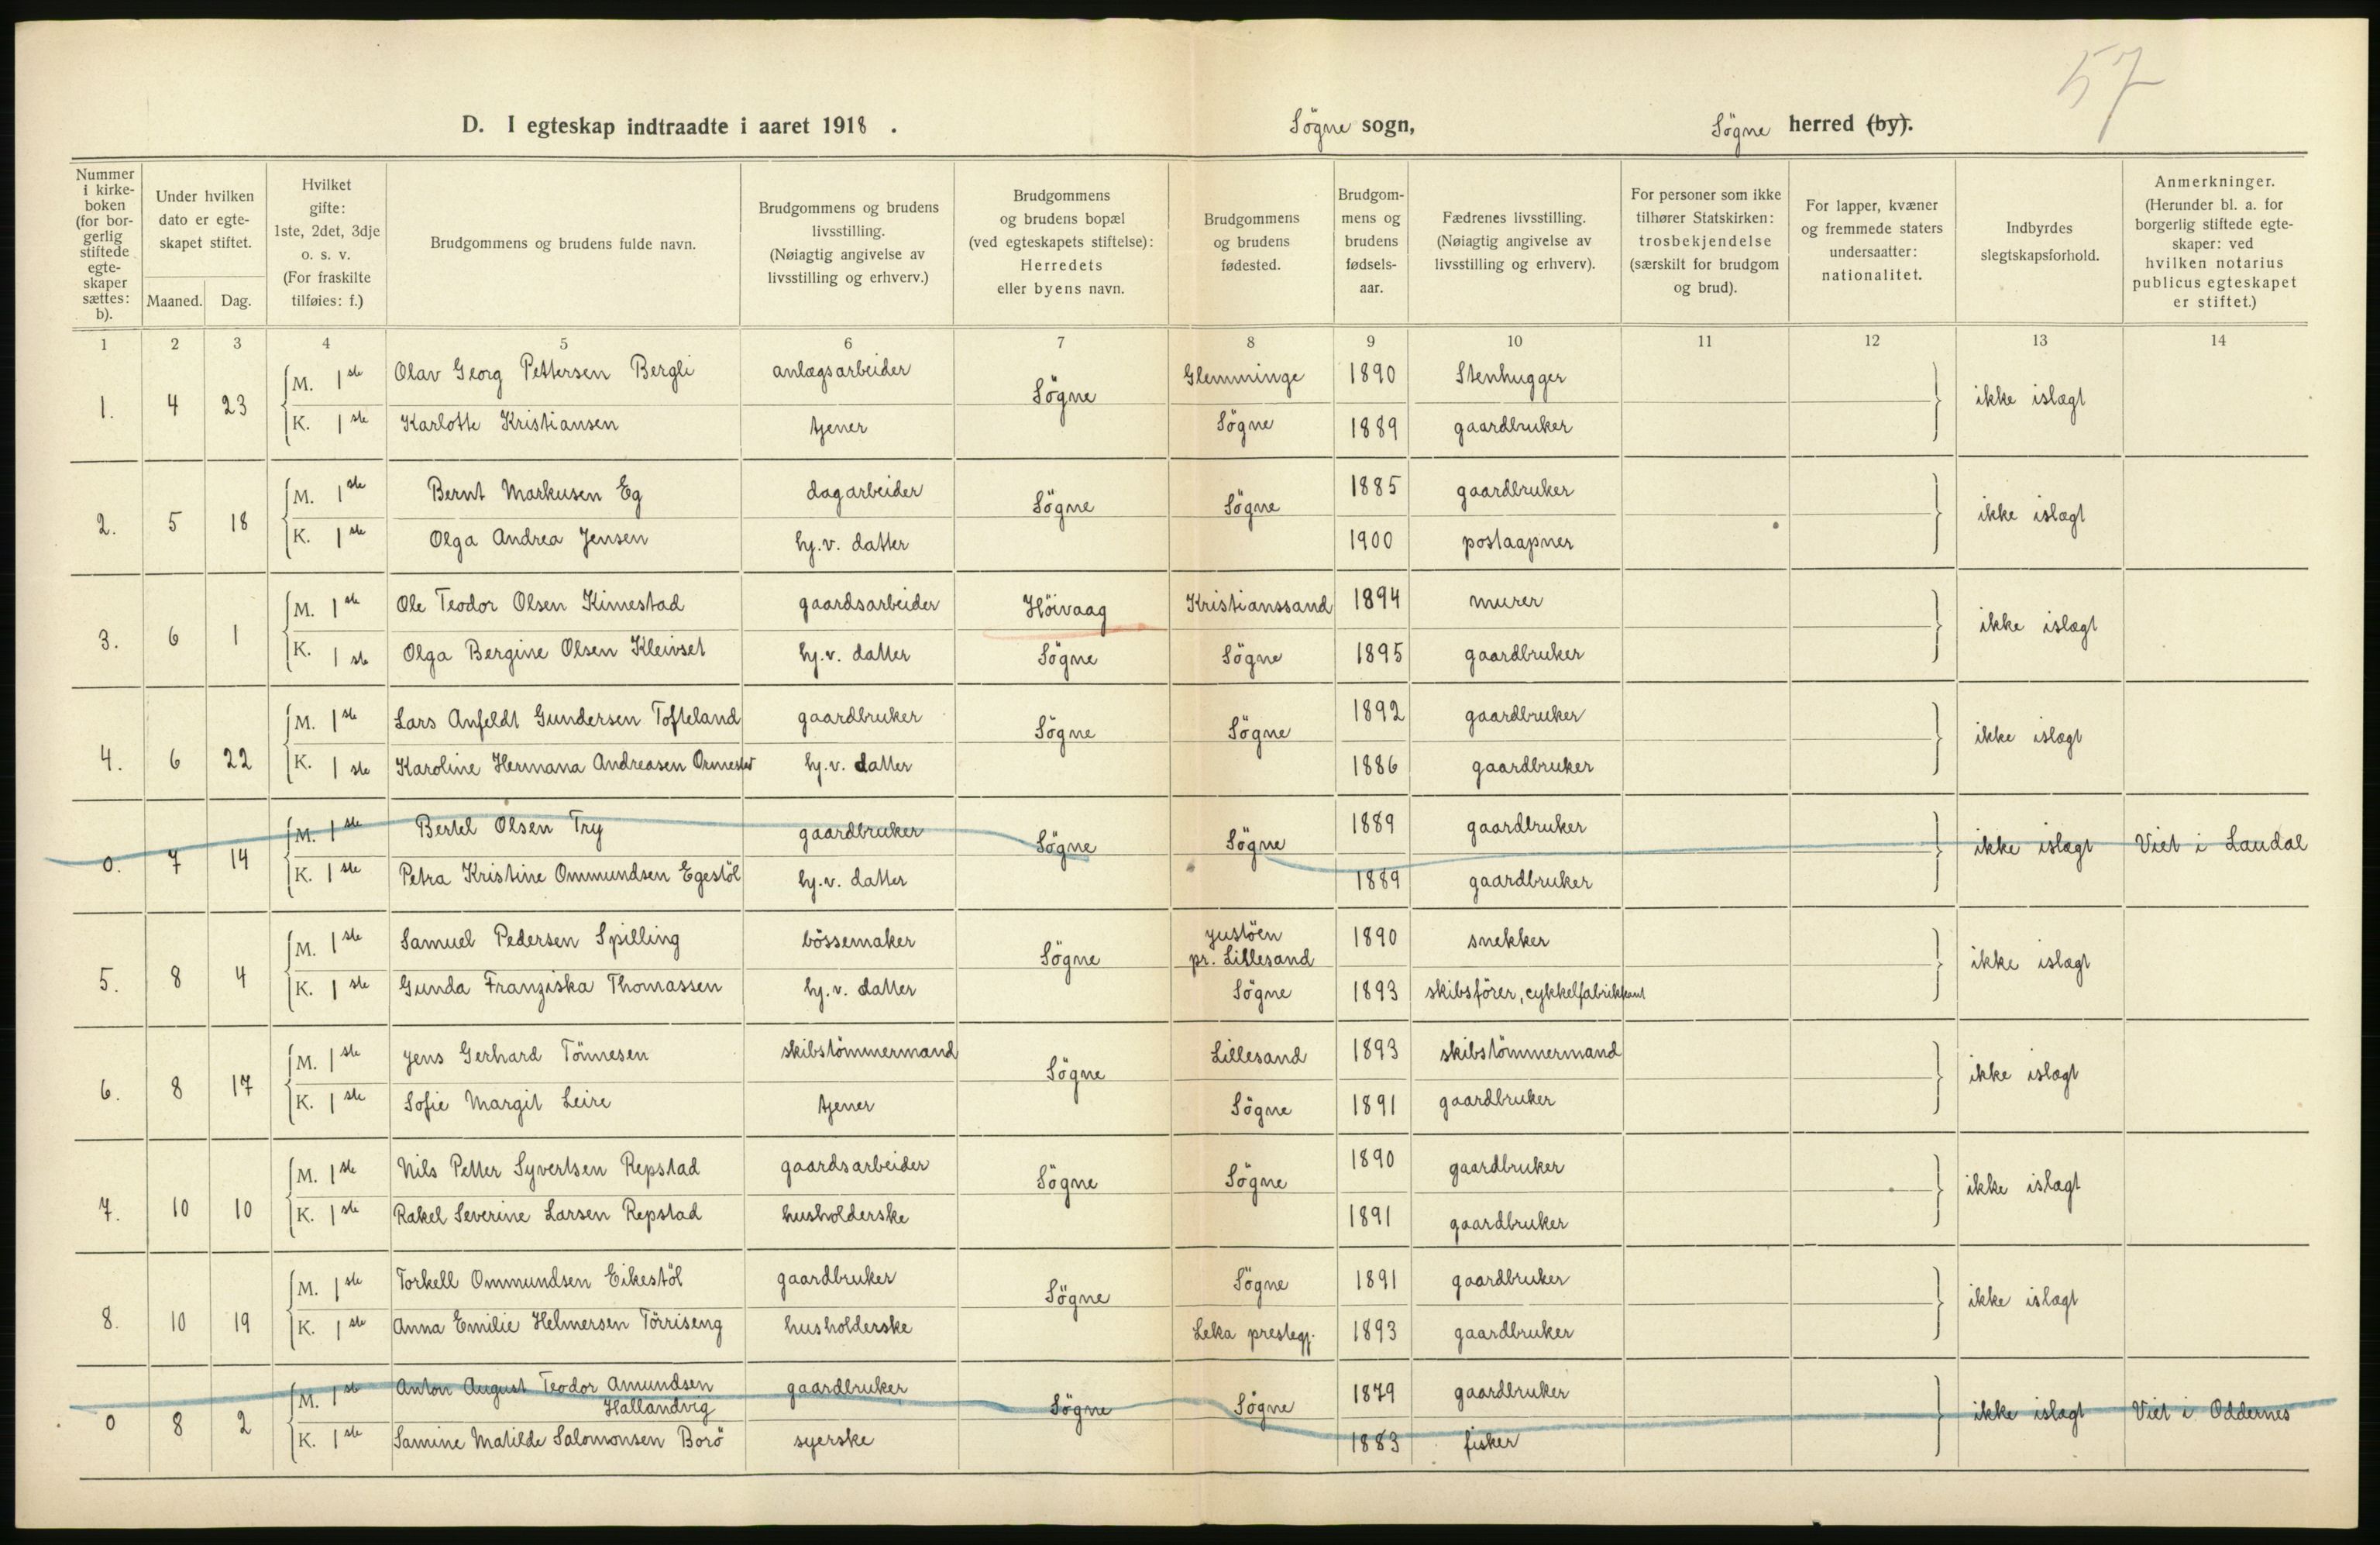 57
D. I egteskap indtraadte i aaret 1918 . Sögne sogn, Sögne herred (by).
Nummer i kirkeboken (for borgerlig stiftede egteskaper sættes: b).
Under hvilken dato er egteskapet stiftet.
Maaned. Dag.
Hvilket gifte: 1ste, 2det, 3dje o. s. v. (For fraskilte tilføies: f.)
Brudgommens og brudens fulde navn.
Brudgommens og brudens livsstilling. (Nøiagtig angivelse av livsstilling og erhverv.)
Brudgommens og brudens bopæl (ved egteskapets stiftelse): Herredets eller byens navn.
Brudgommens og brudens fødested.
Brudgommens og brudens fødselsaar.
Fædrenes livsstilling. (Nøiagtig angivelse av livsstilling og erhverv).
For personer som ikke tilhører Statskirken: trosbekjendelse (særskilt for brudgom og brud).
For lapper, kvæner og fremmede staters undersaatter: nationalitet.
Indbyrdes slegtskapsforhold.
Anmerkninger. (Herunder bl. a. for borgerlig stiftede egteskaper: ved hvilken notarius publicus egteskapet er stiftet.)
1 2 3 4 5 6 7 8 9 10 11 12 13 14
1. 4 23 M. 1ste Olav Georg Pettersen Bergli anlægsarbeider Sögne Glemminge 1890 Stenhugger ikke islægt
K. 1ste Karlotte Kristiansen tjener Sögne 1889 gaardbruker
2. 5 18 M. 1ste Bernt Markusen Eg dagarbeider Sögne Sögne 1885 gaardbruker ikke islægt
K. 1ste Olga Andrea Jensen hj.v. datter 1900 postaapner
3. 6 1 M. 1ste Ole Teodor Olsen Kimestad gaardsarbeider Höivaag Kristianssand 1894 murer ikke islægt
K. 1ste Olga Bergine Olsen Kleivset hj.v. datter Sögne Sögne 1895 gaardbruker
4. 6 22 M. 1ste Lars Anfeldt Gundersen Tofteland gaardbruker Sögne Sögne 1892 gaardbruker ikke islægt
K. 1ste Karoline Hermana Andreasen hj.v. datter 1886 gaardbruker
0. 7 14 M. 1ste Bertel Olsen Try gaardbruker Sögne Sögne 1889 gaardbruker ikke islægt Viet i Laudal
K. 1ste Petra Kristine Ommundsen Egestöl hj.v. datter 1889 gaardbruker
5. 8 4 M. 1ste Samuel Pedersen Spilling bössemaker Sögne Justöen pr. Lillesand 1890 snekker ikke islægt
K. 1ste Gunda Franziska Thomassen hj.v. datter Sögne 1893 skibsförer, cykkelfabrikkant
6. 8 17 M. 1ste Jens Gerhard Tönnesen skibstömmermand Sögne Lillesand 1893 skibstömmermand ikke islægt
K. 1ste Sofie Margit Leire tjener Sögne 1891 gaardbruker
7. 10 10 M. 1ste Nils Petter Syvertsen Repstad gaardsarbeider Sögne Sögne 1890 gaardbruker ikke islægt
K. 1ste Rakel Severine Larsen Repstad husholderske 1891 gaardbruker
8. 10 19 M. 1ste Torkell Ommundsen Eikestöl gaardbruker Sögne Sögne 1891 gaardbruker ikke islægt
K. 1ste Anna Emilie Helmersen Törriseng husholderske Leka prestegj. 1893 gaardbruker
0 8 2 M. 1ste Anton August Teodor Amundsen Hallandvig gaardbruker Sögne Sögne 1879 gaardbruker ikke islægt Viet i Oddernes
K. 1ste Samine Matilde Salomonsen Borö syerske 1883 fisker